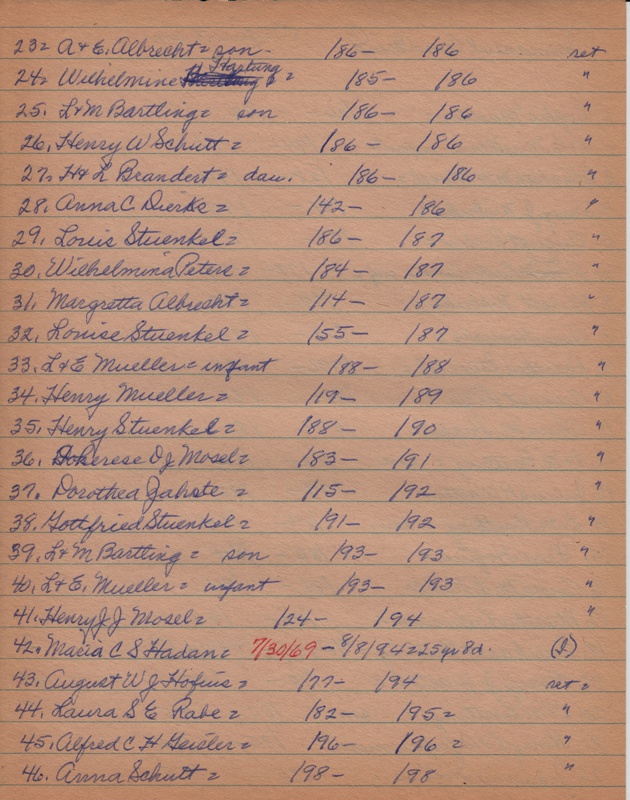 23= A + E. Albrecht = son - 186- 186 ret
24= Wilhelmine Hartung = 185- 186 "
25. L + M Bartling = son 186- 186 "
26. Henry W Schutt = 186- 186 "
27. H + L Brandert = dau. 186- 186 "
28. Anna C. Dierke = 142- 186 "
29. Louis Stuenkel = 186- 187 "
30. Wilhelmina Peters = 184- 187 "
31. Margretta Albrecht = 114- 187 "
32. Louise Stuenkel = 155- 187 "
33. L + E Mueller = infant 188- 188 "
34. Henry Mueller = 119- 189 "
35. Henry Stuenkel = 188- 190 "
36. O J Mosel = 183- 191 "
37. Dorothea Jahste = 115- 192 "
38. Gottfried Stuenkel = 191- 192 "
39. L + M Bartling = son 193- 193 "
40. L + E. Mueller = infant 193- 193 "
41. Henry J J Mosel = 124- 194 "
42. Maria C S Hadan = 7/30/69 - 8/8/94 = 25yr 8d. (I)
43. August W J Hofius = 177- 194 ret =
44. Laura S E Rabe = 182- 195 = "
45. Alfred C H Geisler = 196- 196 = "
46. Anna Schutt = 198- 198 "